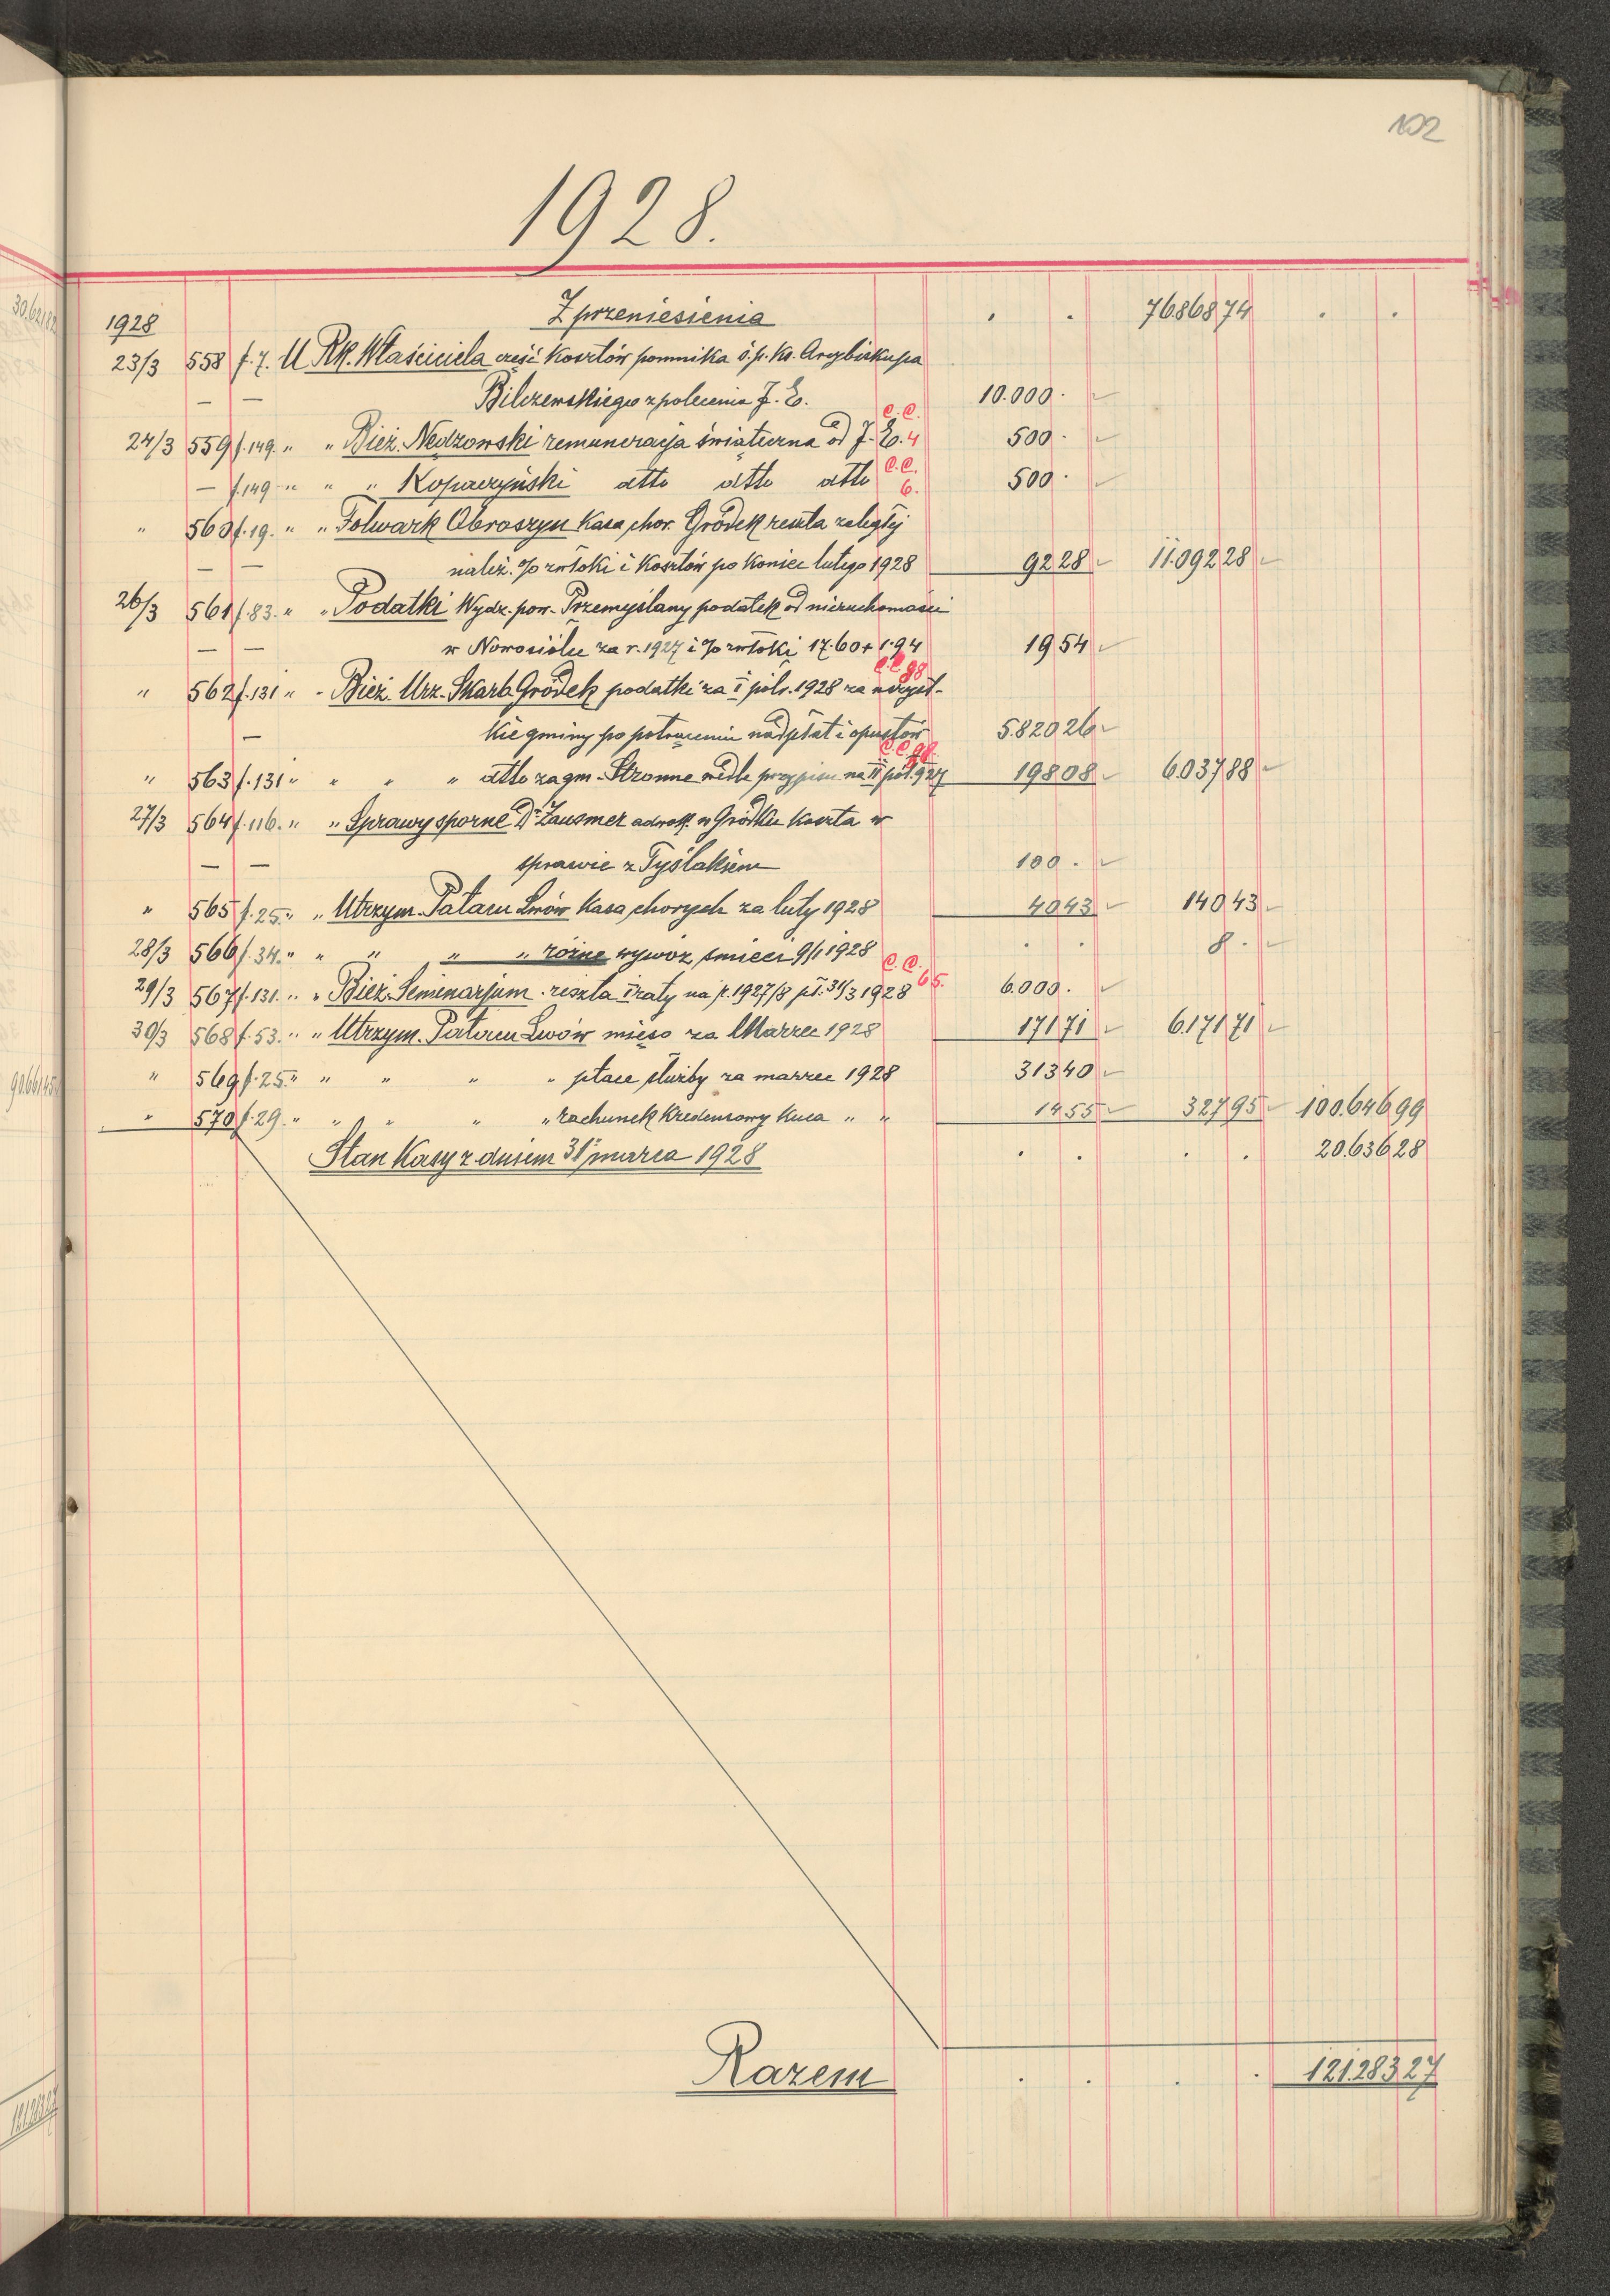 102
1928.
1928 Z przeniesienia . . 76.868 74 . .
23/3 558 f. 7. U Rk. Właściciela część kosztów pomnika ś. p. Ks. Arcybiskupa
— — Bilczewskiego z polecenia J. E. 10.000 .
24/3 559 f. 149. " " Bież. Nędzowski remuneracja świąteczna od J. E. c.c. 4 500 .
— f. 149 " " " Kopaczyński dtto dtto dtto c.c. 6. 500 .
" 560 f. 19. " " Folwark Obroszyn Kasa chor. Gródek reszta zaległej
— — należ. % zwłoki i kosztów po koniec lutego 1928 92 28 11.092 28
26/3 561 f. 83. " " Podatki Wydz. pow. Przemyślany podatek od nieruchomości
— — w Nowosiółce za r. 1927 i % zwłoki 17.60 + 1.94 19 54
" 562 f. 131 " " Bież. Urz. Skarb. Gródek podatki za I półr. 1928 za wszyst- c.c. 98
— kie gminy po potrąceniu nadpłat i opustów 5.820 26
" 563 f. 131 " " " " dtto za gm. Stronne wedle przypisu na II pół. 927 c.c. 198 08 6.037 88
27/3 564 f. 116. " " Sprawy sporne Dr Zausmer adwok. w Gródku koszta w
— — sprawie z Tyślakiem 100 .
" 565 f. 25. " " Utrzym. Pałacu Lwów Kasa chorych za luty 1928 40 43 140 43
28/3 566 f. 34. " " " " " różne wywóz śmieci 9/1 1928 . . 8 .
29/3 567 f. 131. " " Bież. Seminarjum reszta I raty na r. 1927/8 pł. 31/3 1928 c.c. 65. 6.000 .
30/3 568 f. 53. " " Utrzym. Pałacu Lwów mięso za Marzec 1928 171 71 6.171 71
" 569 f. 25. " " " " " płace służby za marzec 1928 313 40
" 570 f. 29. " " " " " rachunek kredensowy Kuca " " 14 55 327 95 100.646 99
Stan Kasy z dniem 31 go marca 1928 . . . . 20.636 28
Razem . . . . 121.283 27